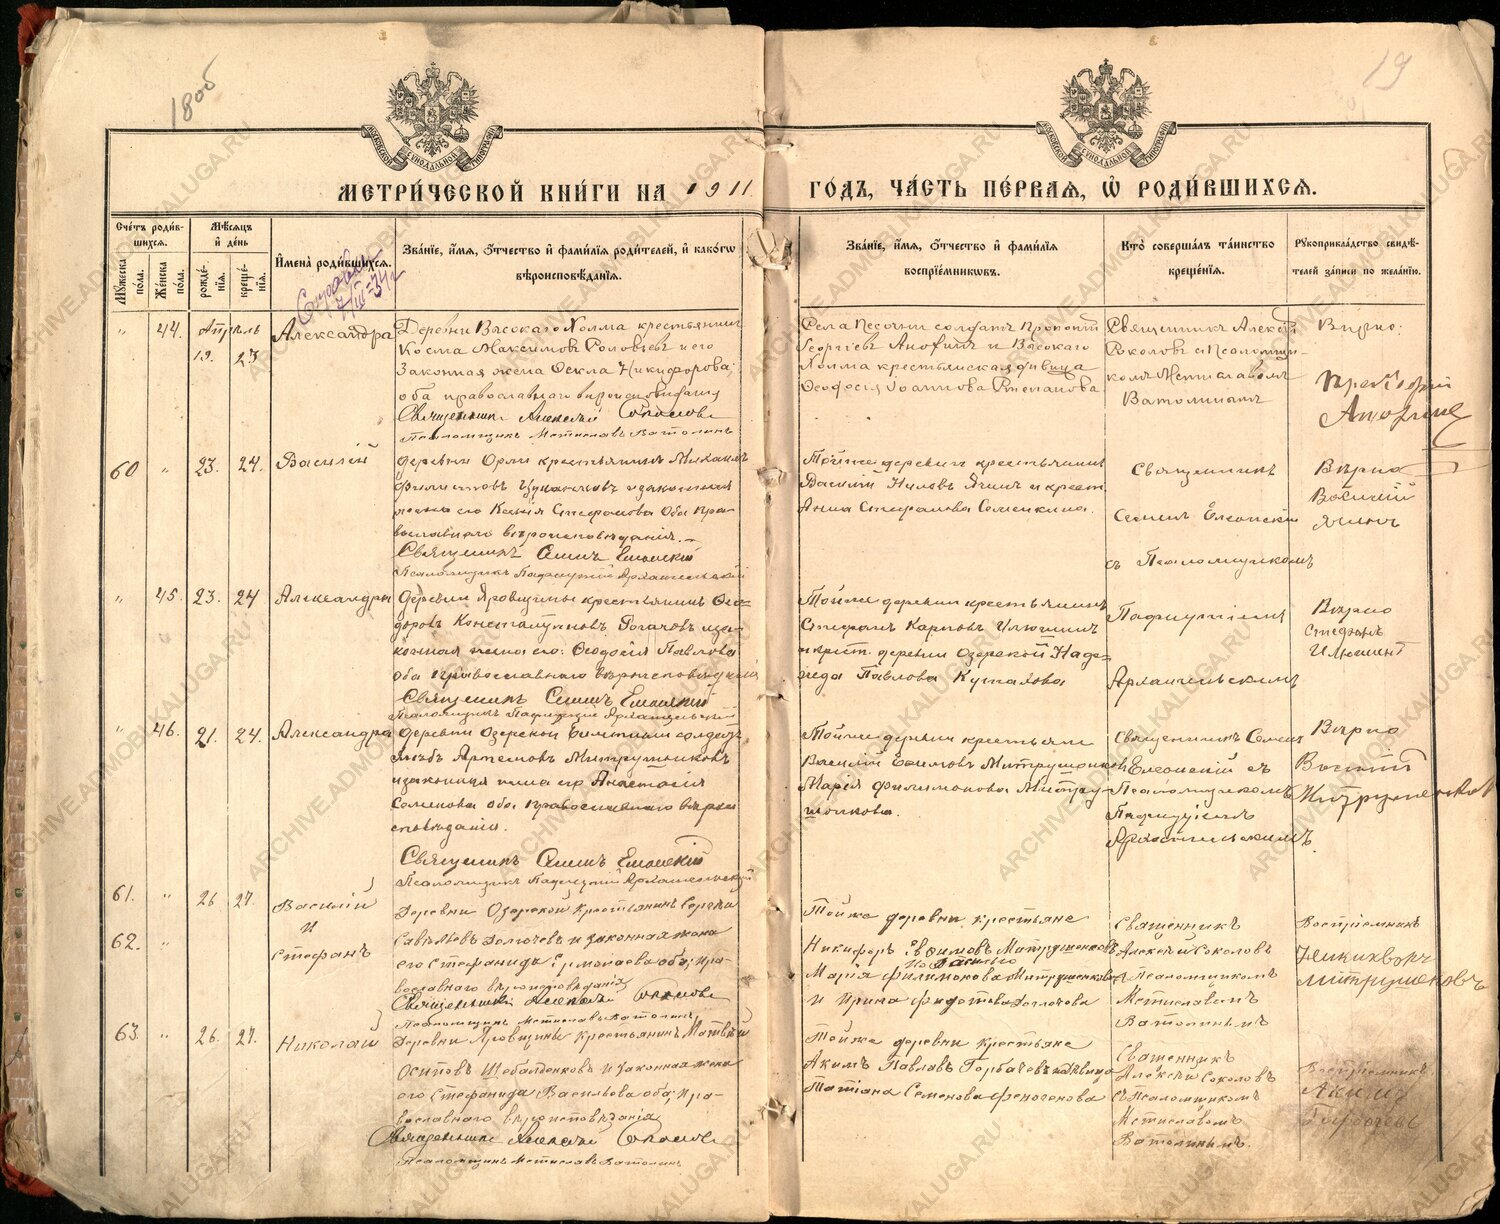 180об
19
МОСКОВСКОЙ СѴНОДАЛЬНОЙ ТИПОГРАФІИ
МОСКОВСКОЙ СѴНОДАЛЬНОЙ ТИПОГРАФІИ
МЕТРИ́ЧЕСКОЙ КНИ́ГИ НА 1911 ГО́ДЪ, ЧА́СТЬ ПЕ́РВАЯ, Ѡ РОДИ́ВШИХСЯ.
Сче́тъ роди́вшихся.
Му́жеска пола.
Же́нска пола.
Мѣ́сяцъ и́ де́нь
рожде́нія.
креще́нія.
И́мена̀ роди́вшихся.
Зва́ніе, и́мя, ѻ́тчество и́ фами́лія роди́телей, и́ како́гѡ вѣроисповѣ́данія.
Зва́ніе, и́мя, ѻ́тчество и́ фами́лія воспріе́мниковъ.
Кто̀ соверша́лъ та́инство креще́нія.
Рꙋкоприкла́дство свидѣ́телей за́писи по жела́нію.
" 44. Апрѣль 19. 23 Александра
Деревни Высокаго Холма крестьянинъ
Косма Максимовъ Соловьевъ и его
Законная жена Фекла Никифорова;
оба православнаго вѣроисповѣданія
Священникъ Алексей Соколовъ
Псаломщикъ Мстиславъ Ватолинъ
Села Песочни солдатъ Прокопій
Георгіевъ Анохинъ и Высокаго
Холма крестьянская дѣвица
Феодосія Іоаннова Степанова
Священникъ Алексѣй
Соколовъ и Псаломщикомъ Мстиславомъ
Ватолинымъ
Вѣрно:
60 " 23. 24. Василій
деревни Орли крестьянинъ Михаилъ
Филиповъ и законная
жена его Ксенія Стефанова Оба православнаго вѣроисповѣданія.
Священникъ Симеонъ Елеонскій
Псаломщикъ Пафнутій Архангельскій
Тойже деревни крестьянинъ
Василій Ниловъ Яшинъ и крест.
Анна Стефанова Семенкина.
Священникъ
Симеонъ Елеонскій
съ Псаломщикомъ
Вѣрно
Василій
Яшинъ
" 45. 23. 24 Александра
деревни Яровщины крестьянинъ Феодоровъ Константиновъ Рогачовъ и законная жена его: Феодосія Павлова
оба православнаго вѣроисповѣданія
Священникъ Симеонъ Елеонскій
Псаломщикъ Пафнутій Архангельскій
Тойже деревни крестьянинъ
Стефанъ Карповъ Илюшинъ
и крест. деревни Озерской Надежда Павлова
Пафнутіемъ
Архангельскимъ
Вѣрно
Стефанъ
Илюшинъ
" 46. 21. 24. Александра
деревни Озерской солдатъ
Глѣбъ Артемовъ Митрушенковъ
и законная жена его Анастасія
Семенова оба православнаго вѣроисповѣданія.
Священникъ Симеонъ Елеонскій
Псаломщикъ Пафнутій Архангельскій
Тойже деревни крестьяне
Василій Ефимовъ Митрушенковъ
Марія Филимонова Митрушенкова.
Священникъ Симеонъ
Елеонскій съ
Псаломщикомъ
Пафнутіемъ
Архангельскимъ.
Вѣрно
Василій
Митрушенковъ
61. " 26 27. Василій
и
62. " Стефанъ
Деревни Озерской Крестьянинъ Сергѣй
Савельевъ Долгочевъ и законная жена
его Стефанида Ермолаева оба; православнаго вѣроисповѣданія
Священникъ Алексей Соколовъ
Псаломщикъ Мстиславъ Ватолинъ
Тойже деревни крестьяне
Никифоръ Ефимовъ Митрушенковъ
Марія Филимонова Митрушенкова
и Ирина Федотова Долгочова
Священникъ
Алексѣй Соколовъ
съ Псаломщикомъ
Мстиславомъ
Ватолинымъ
Воспріемникъ
Никифоръ
Митрушенковъ
63. " 26. 27. Николай
Деревни Яровщины Крестьянинъ Матвѣй
Осиповъ Шебалденковъ и законная жена
его Стефанида Васильева оба; православнаго вѣроисповѣданія
Священникъ Алексей Соколовъ
Псаломщикъ Мстиславъ Ватолинъ
Тойже деревни крестьяне
Акимъ Павловъ Горбачевъ и дѣвица
Татіана Семенова Феногенова
Священникъ
Алексѣй Соколовъ
съ Псаломщикомъ
Мстиславомъ
Ватолинымъ.
Воспріемникъ
Акимъ
Горбачевъ
ARCHIVE.ADMOBLKALUGA.RU